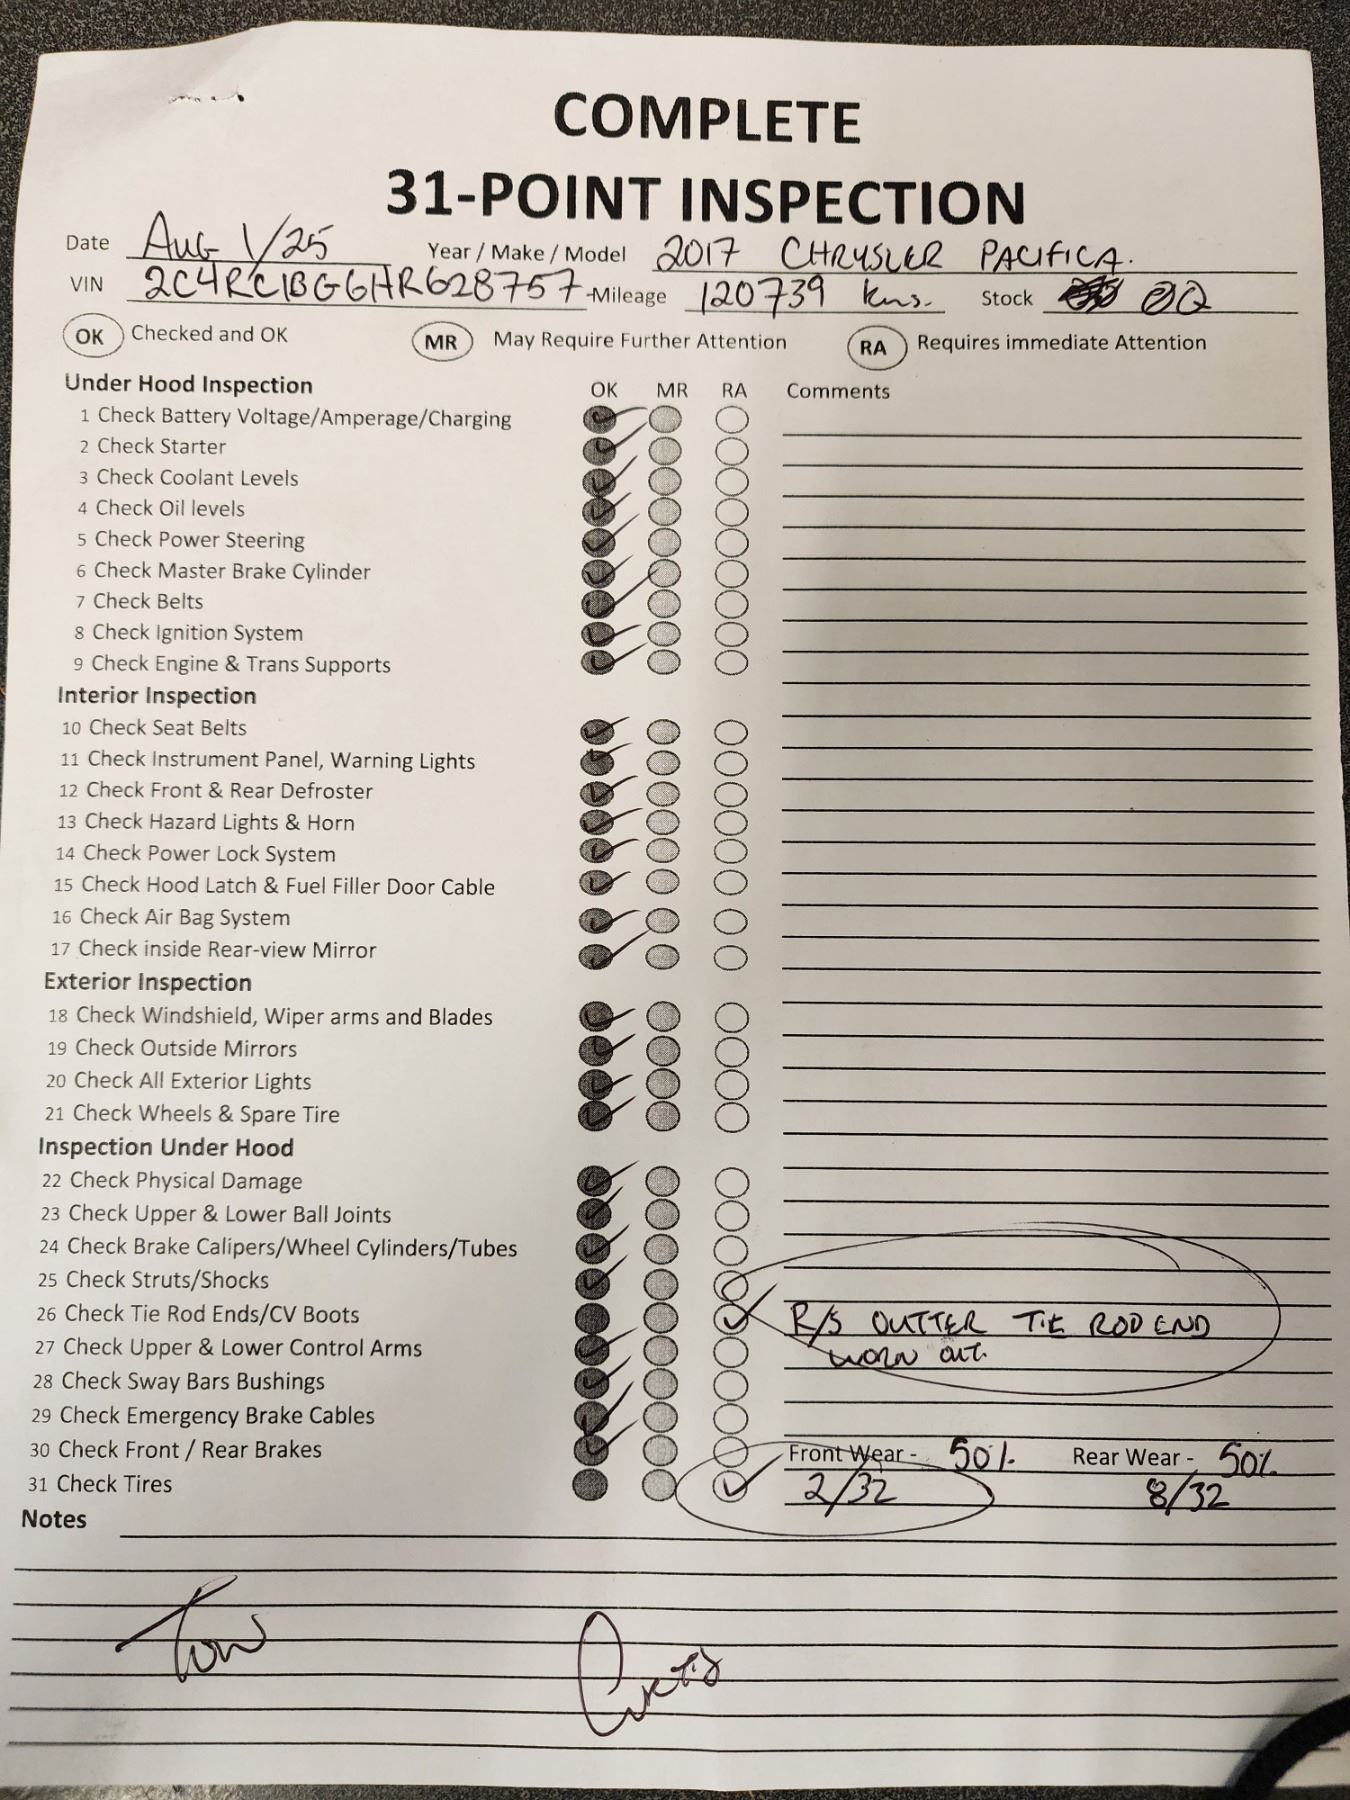 COMPLETE
31-POINT INSPECTION
Date Aug 1/25 Year / Make / Model 2017 CHRYSLER PACIFICA.
VIN 2C4RC1BG6HR628757 Mileage 120739 kms. Stock
OK Checked and OK MR May Require Further Attention RA Requires immediate Attention
Under Hood Inspection OK MR RA Comments
1 Check Battery Voltage/Amperage/Charging
2 Check Starter
3 Check Coolant Levels
4 Check Oil levels
5 Check Power Steering
6 Check Master Brake Cylinder
7 Check Belts
8 Check Ignition System
9 Check Engine & Trans Supports
Interior Inspection
10 Check Seat Belts
11 Check Instrument Panel, Warning Lights
12 Check Front & Rear Defroster
13 Check Hazard Lights & Horn
14 Check Power Lock System
15 Check Hood Latch & Fuel Filler Door Cable
16 Check Air Bag System
17 Check inside Rear-view Mirror
Exterior Inspection
18 Check Windshield, Wiper arms and Blades
19 Check Outside Mirrors
20 Check All Exterior Lights
21 Check Wheels & Spare Tire
Inspection Under Hood
22 Check Physical Damage
23 Check Upper & Lower Ball Joints
24 Check Brake Calipers/Wheel Cylinders/Tubes
25 Check Struts/Shocks
26 Check Tie Rod Ends/CV Boots R/S OUTTER TIE ROD END
27 Check Upper & Lower Control Arms WORN OUT.
28 Check Sway Bars Bushings
29 Check Emergency Brake Cables
30 Check Front / Rear Brakes Front Wear - 50% Rear Wear - 50%
31 Check Tires 2/32 8/32
Notes
Curtis